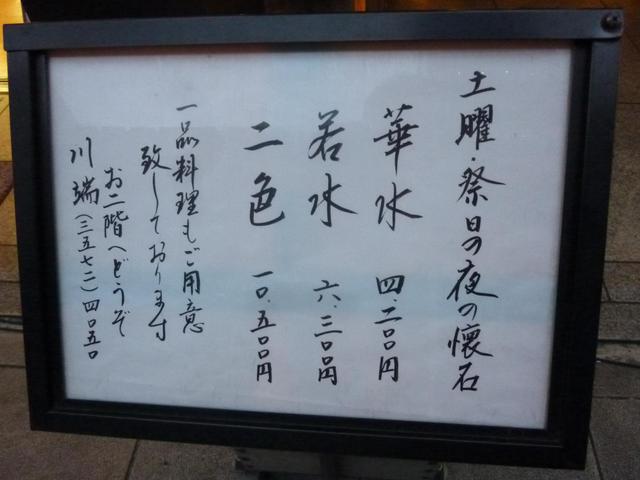 土曜・祭日の夜の懐石
華水 四.二〇〇円
若水 六.三〇〇円
二色 一〇.五〇〇円
一品料理もご用意
致しております
お二階へどうぞ
川端(三五七二)四〇五〇